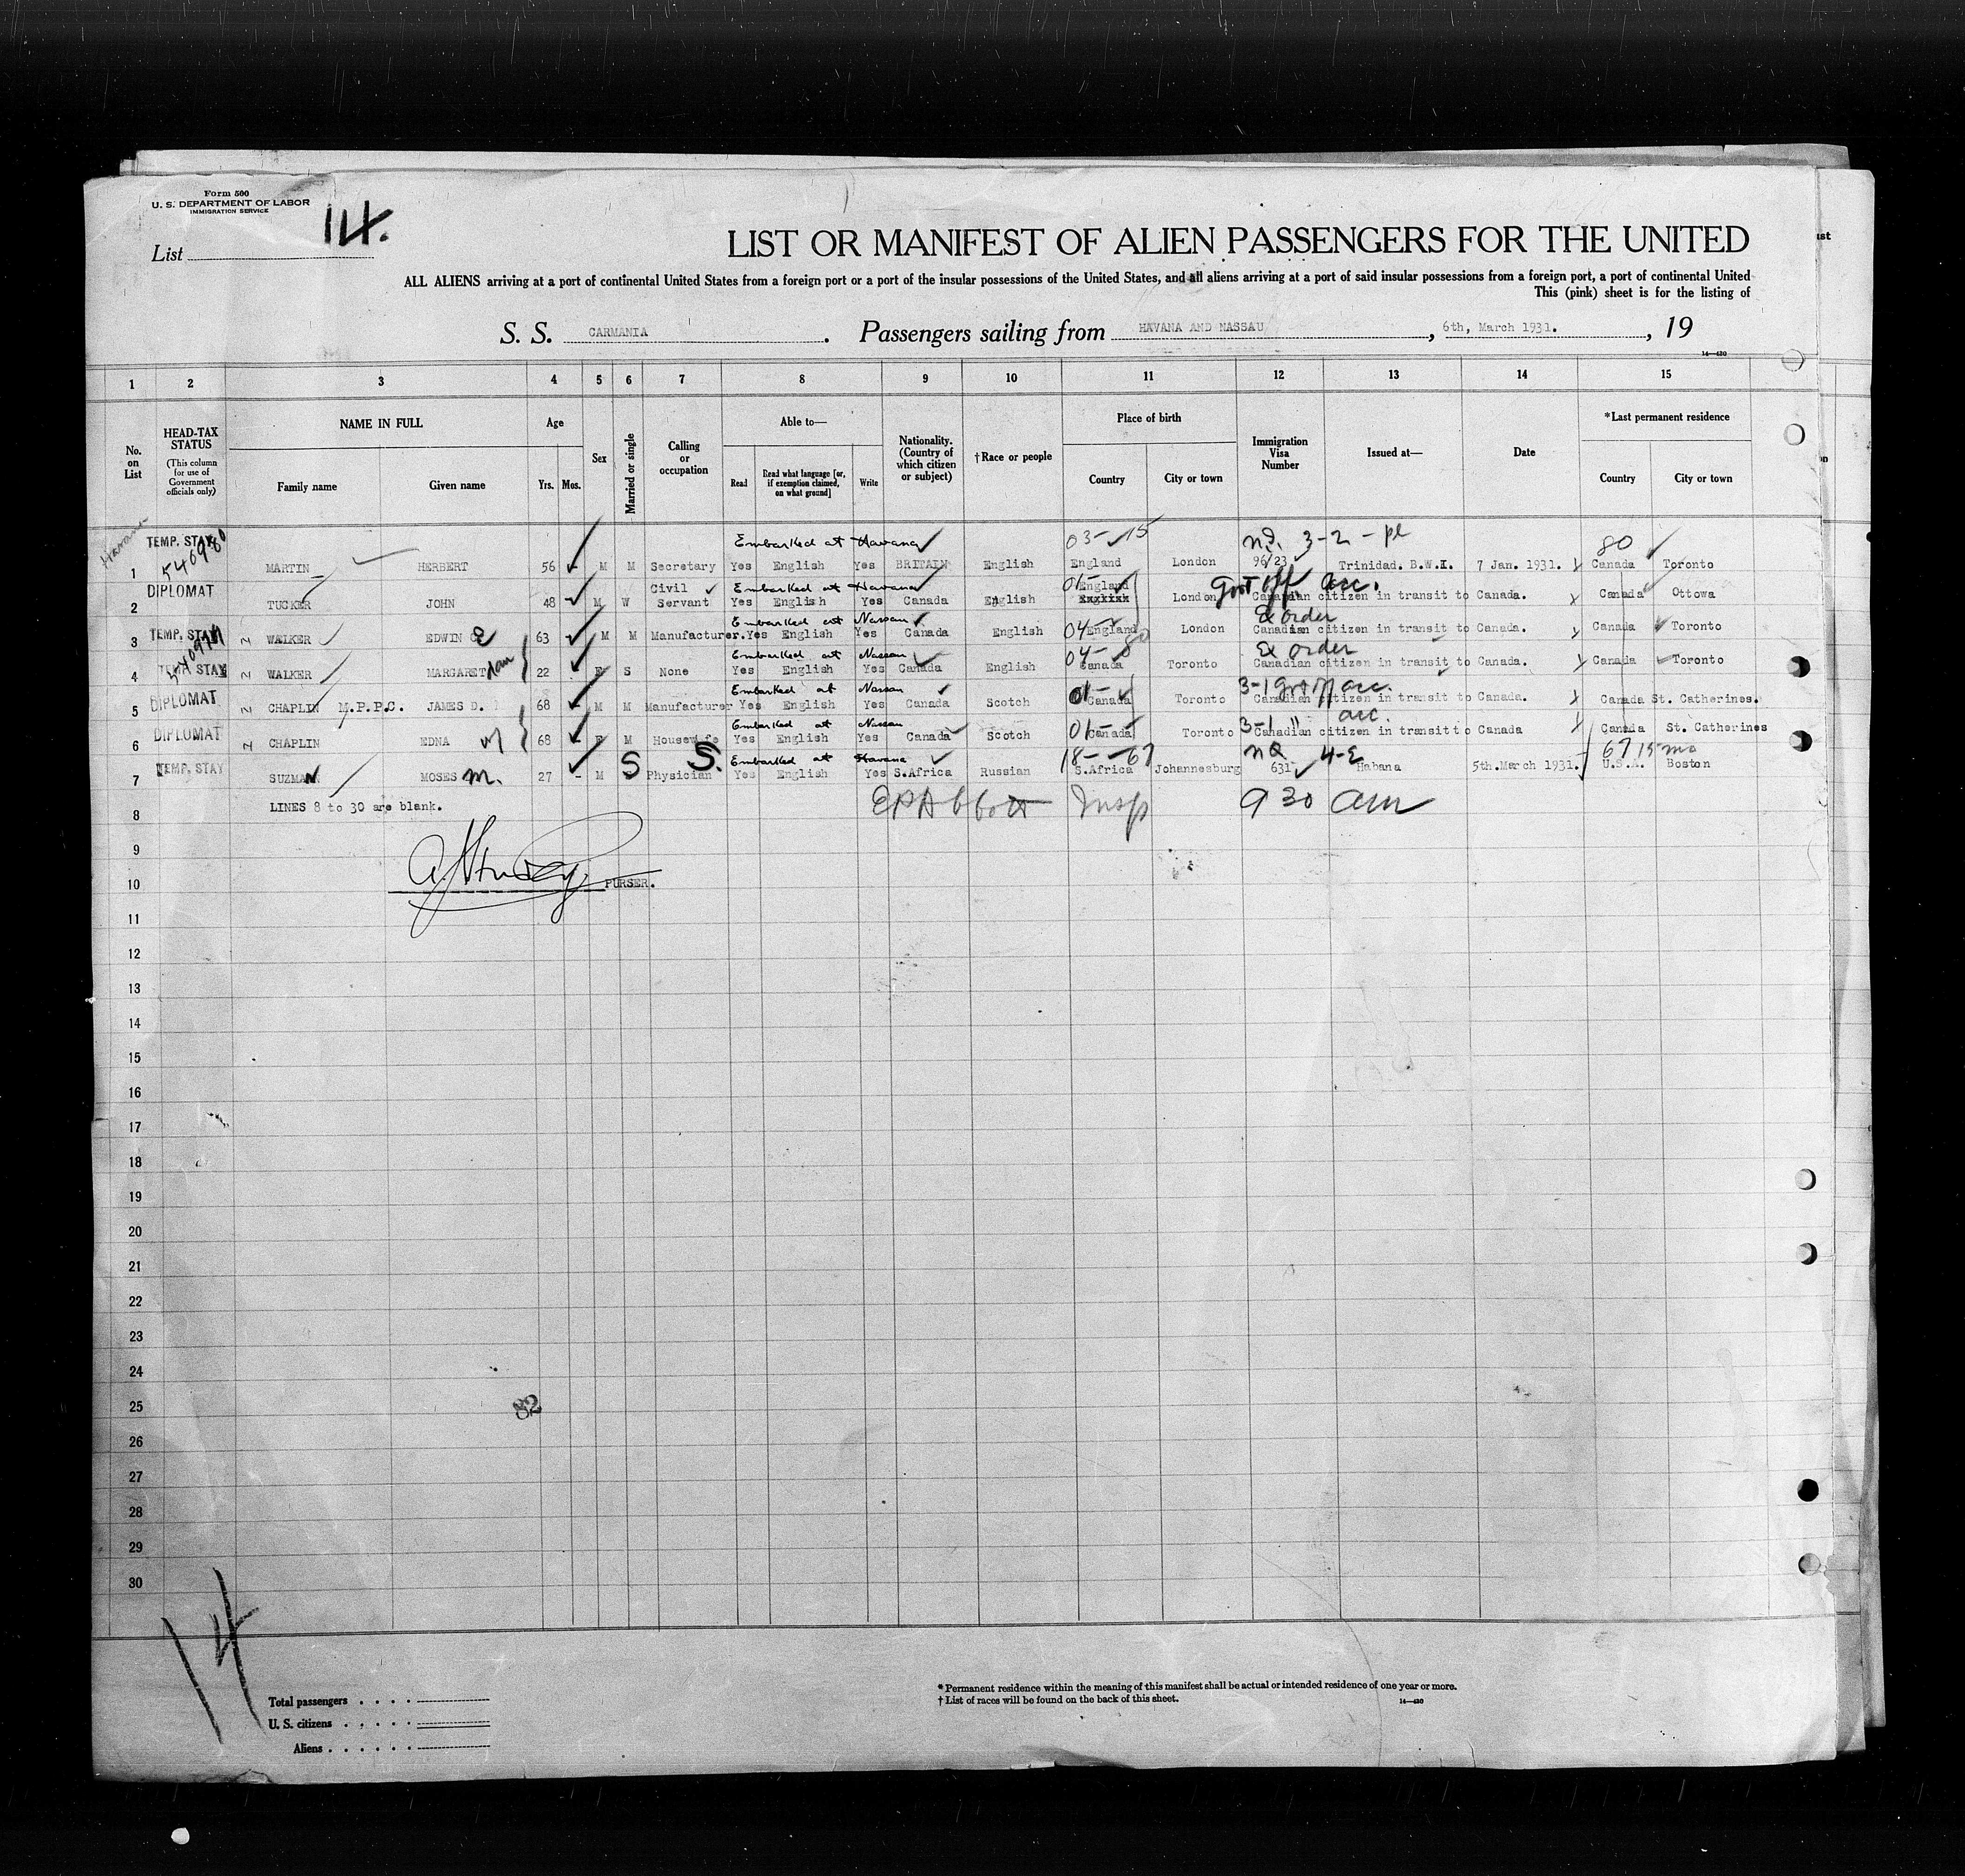 Form 500
U. S. DEPARTMENT OF LABOR
IMMIGRATION SERVICE
List 14.
LIST OR MANIFEST OF ALIEN PASSENGERS FOR THE UNITED
ALL ALIENS arriving at a port of continental United States from a foreign port or a port of the insular possessions of the United States, and all aliens arriving at a port of said insular possessions from a foreign port, a port of continental United
This (pink) sheet is for the listing of
S. S. CARMANIA. Passengers sailing from HAVANA AND NASSAU, 6th, March 1931., 19
14—420
1 2 3 4 5 6 7 8 9 10 11 12 13 14 15
No. on List
HEAD-TAX STATUS (This column for use of Government officials only)
NAME IN FULL
Family name Given name
Age
Yrs. Mos.
Sex
Married or single
Calling or occupation
Able to—
Read
Read what language [or, if exemption claimed, on what ground]
Write
Nationality. (Country of which citizen or subject)
†Race or people
Place of birth
Country City or town
Immigration Visa Number
Issued at—
Date
*Last permanent residence
Country City or town
Havana
TEMP. STAY 540980 Embarked at Havana 03- 15 3-2 - pl 80
1 MARTIN HERBERT 56 - M M Secretary Yes English Yes BRITAIN English England London 96/23 Trinidad. B.W.I. 7 Jan. 1931. Canada Toronto
DIPLOMAT Civil Embarked at Havana 01- England Govt Off acc.
2 TUCKER JOHN 48 M W Servant Yes English Yes Canada English London Canadian citizen in transit to Canada. Canada Ottawa
TEMP. STAY Embarked at Nassau 04- Ex order
3 WALKER EDWIN C E 63 M M Manufacturer. Yes English Yes Canada English England London Canadian citizen in transit to Canada. Canada Toronto
TEMP. STAY Embarked at Nassau 04- 80 Ex order
4 WALKER MARGARET dau 22 F S None Yes English Yes Canada English Canada Toronto Canadian citizen in transit to Canada. Canada Toronto
DIPLOMAT Embarked at Nassau 01- 3-1 govt off acc.
5 CHAPLIN M.P.P.C. JAMES D. 68 - M M Manufacturer Yes English Yes Canada Scotch Canada Toronto Canadian citizen in transit to Canada. Canada St. Catherines.
DIPLOMAT Embarked at Nassau 01- 3-1 " acc.
6 CHAPLIN EDNA wf 68 - F M Housewife Yes English Yes Canada Scotch Canada Toronto Canadian citizen in transit to Canada Canada St. Catherines
TEMP. STAY S S. Embarked at Havana 18- -67 NQ 4-E 67 15 mo
7 SUZMAN MOSES M. 27 - M Physician Yes English Yes S.Africa Russian S.Africa Johannesburg 631 Habana 5th.March 1931. U.S.A. Boston
8 LINES 8 to 30 are blank. EP Abbott Insp 9 30 am
9
10 PURSER.
11
12
13
14
15
16
17
18
19
20
21
22
23
24
25 82
26
27
28
29
30
14
Total passengers
U. S. citizens
Aliens
* Permanent residence within the meaning of this manifest shall be actual or intended residence of one year or more.
† List of races will be found on the back of this sheet.
14—420